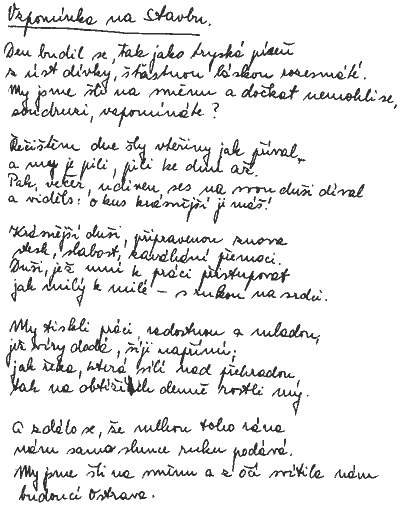 Vzpomínka na Stavbu.
Den budil se, tak jako tryská píseň
z úst dívky, šťastnou láskou rozesmáté.
My jsme šli na směnu a dočkat nemohli se,
soudruzi, vzpomínáte?
Řečištěm dne šly vteřiny jak příval
a my je pili, pili ke dnu až.
Pak, večer, udiven, ses na svou duši díval
a viděls: o kus krásnější ji máš!
Krásnější duši, připravenou znova
stesk, slabost, zaváhání přemoci.
Duši, jež umí k práci přistupovat
jak milý k milé – s rukou na srdci.
My tiskli práci radostnou a mladou,
jež víry dodá, šíji napřímí;
jak řeka, která sílí nad přehradou,
tak na obtížích denně rostli my.
A zdálo se, že mlhou toho rána
nám samo slunce ruku podává.
My jsme šli na směnu a z očí svítila nám
budoucí Ostrava.